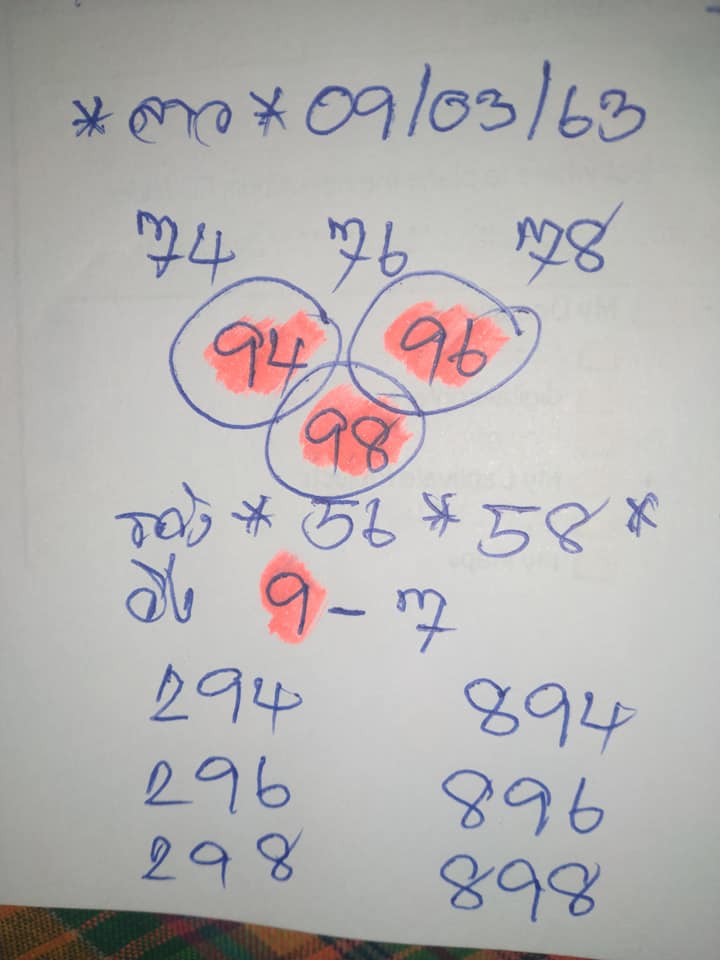 *ลาว*09/03/63
74 76 78
94 96
98
รอง*56*58*
วิ่ง 9-7
294 894
296 896
298 898